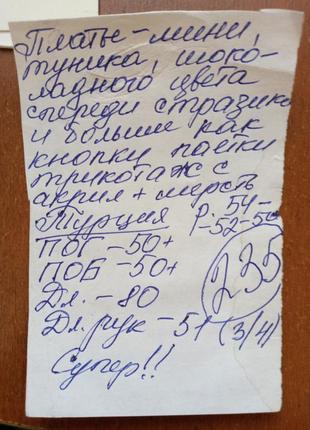 Платье-мини,
туника, шоко-
ладного цвета
спереди стразики
и больше как
кнопки паетки
трикотаж с
акрил + шерсть
Турция Р. 54-
Р-52-54
ПОГ-50+
ПОБ-50+
Дл. - 80
235
Дл. рук - 51 (3/4)
Супер!!